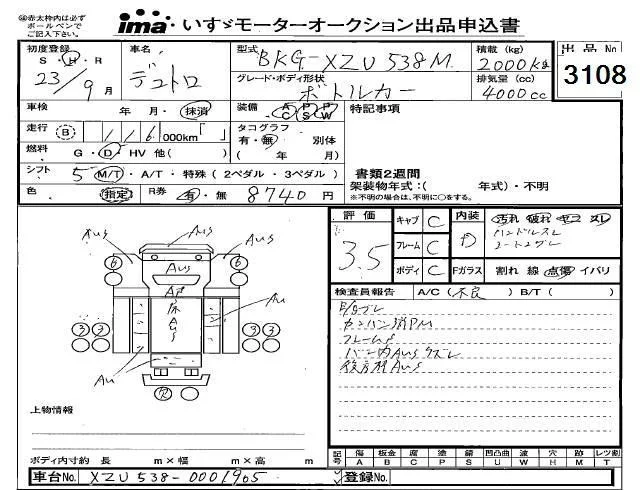 ㊟赤太枠内は必ず
ボールペンで
ご記入下さい。
ima・いすゞモーターオークション出品申込書
初度登録
S・H・R
23/9月
車名
デュトロ
型式
BKG-XZU538M
グレード・ボディ形状
ボトルカー
積載(kg)
2000kg
排気量(cc)
4000cc
出品No
3108
車検 年・月・抹消
装備 AC PS PW
特記事項
走行 B 116,000km「 」
タコグラフ 別体
有・無 ( 年 月)
燃料 G・D・HV 他( )
シフト 5 M/T・A/T・特殊(2ペダル・3ペダル)
書類2週間
架装物年式:( 年式)・不明
※不明の場合は、不明に○をする。
色 指定 R券 有・無 8740円
評価 3.5
キャブ C
フレーム C
ボディ C
内装 D
汚れ 破れ コゲ スレ
ハンドルスレ
Fガラス 割れ 線 点傷 イバリ
検査員報告 A/C(不良) B/T( )
カンバン消PM
フレームS
AUS AUS
AUS
6 6
3 3 3 3
AU AU
上物情報
ボディ内寸約 長 m×幅 m×高 m
記号 傷A 板金B 腐C 塗P 錆S 凹凸曲U 波W 穴H 跡M レツ割T
車台No. XZU538-0001965
登録No.